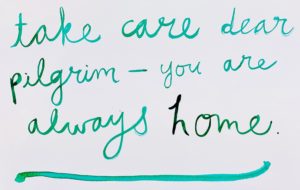 take care dear
pilgrim — you are
always home.